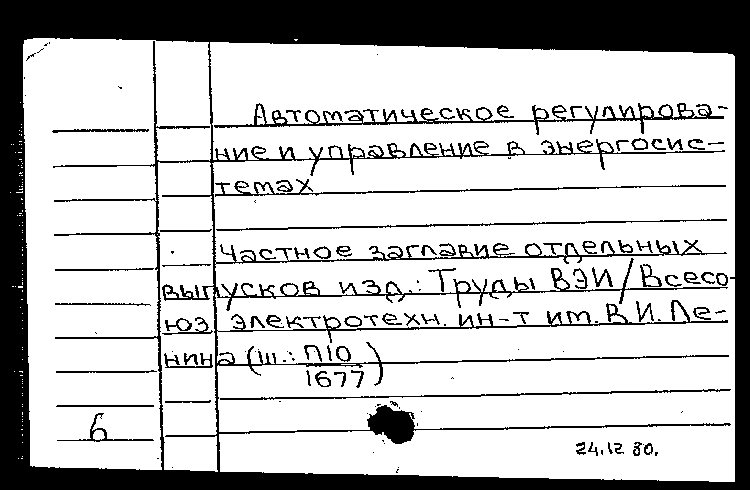 Автоматическое регулирова-
ние и управление в энергосис-
темах
Частное заглавие отдельных
выпусков изд.: Труды ВЭИ/Всесо-
юз. электротехн. ин-т им. В.И. Ле-
нина (Ш.: П10
1677)
6
24.12 80.